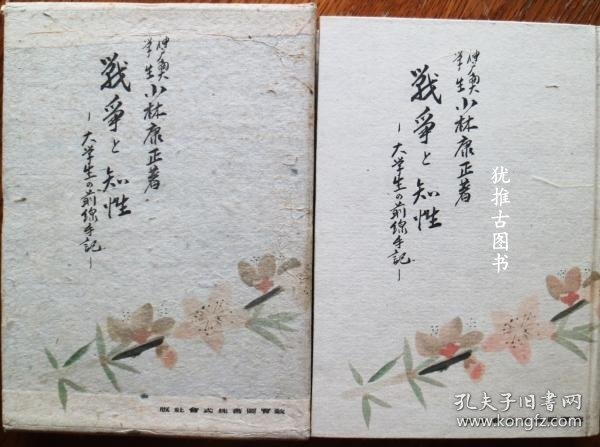 学生 小林康正著
戰爭と知性
－大学生の前線手記－
教育圖書株式會社版
学生 小林康正著
戰爭と知性
－大学生の前線手記－
犹推古图书
孔夫子旧书网
kongfz.com